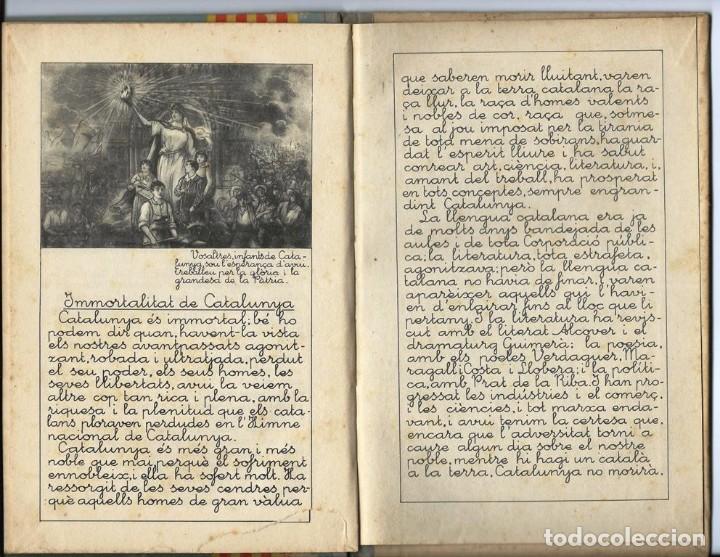 Vosaltres, infants de Cata-
lunya, sou l'esperança d'avui.
treballeu per la glòria i la
grandesa de la Pàtria.
Immortalitat de Catalunya
Catalunya és immortal; bé ho
podem dir quan, havent-la vista
els nostres avantpassats agonit-
zant, robada i ultratjada, perdut
el seu poder, els seus homes, les
seves llibertats, avui la veiem
altre cop tan rica i plena, amb la
riquesa i la plenitud que els cata-
lans ploraven perdudes en l'Himne
nacional de Catalunya.
Catalunya és més gran i més
noble que mai, perquè el sofriment
ennobleix, i ella ha sofert molt. Ha
ressorgit de les seves cendres, per-
què aquells homes de gran vàlua
que saberen morir lluitant, varen
deixar a la terra catalana la ra-
ça llur, la raça d'homes valents
i nobles de cor, raça que, sotme-
sa al jou imposat per la tirania
de tota mena de sobirans, ha guar-
dat l'esperit lliure i ha sabut
conrear art, ciència, literatura, i,
amant del treball, ha prosperat
en tots conceptes, sempre engran-
dint Catalunya.
La llengua catalana era ja
de molts anys bandejada de les
aules i de tota Corporació públi-
ca; la literatura, tota estrafeta,
agonitzava; però la llengua ca-
talana no havia de finar, i varen
aparèixer aquells qui l'havi-
en d'enlairar fins al lloc que li
pertany. I la literatura ha revis-
cut amb el literat Alcover i el
dramaturg Guimerà; la poesia,
amb els poetes Verdaguer, Ma-
ragall i Costa i Llobera; i la políti-
ca, amb Prat de la Riba. I han pro-
gressat les indústries i el comerç,
i les ciències, i tot marxa enda-
vant, i avui tenim la certesa que,
encara que l'adversitat torni a
caure algun dia sobre el nostre
poble, mentre hi hagi un català
a la terra, Catalunya no morirà.
todocoleccion